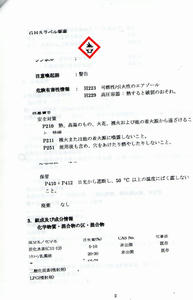 GHSラベル要素
注意喚起語 : 警告
危険有害性情報 : H223 可燃性/引火性のエアゾール
H229 高圧容器：熱すると破裂のおそれ。
安全対策
P210 熱、高温のもの、火花、裸火および他の着火源から遠ざけるこ
P211 裸火または他の着火源に噴霧しないこと。
P251 使用後も含め、穴をあけたり燃やしたりしないこと。
保管
P410+P412 日光から遮断し、50 ℃ 以上の温度にばく露しない
こと。
廃棄 なし
3. 組成及び成分情報
化学物質・混合物の区別 : 混合物
CAS No.
5-10 非公開 既存
20-30 非公開 既存
二酸化炭素(噴射剤)
LPG(噴射剤)
2